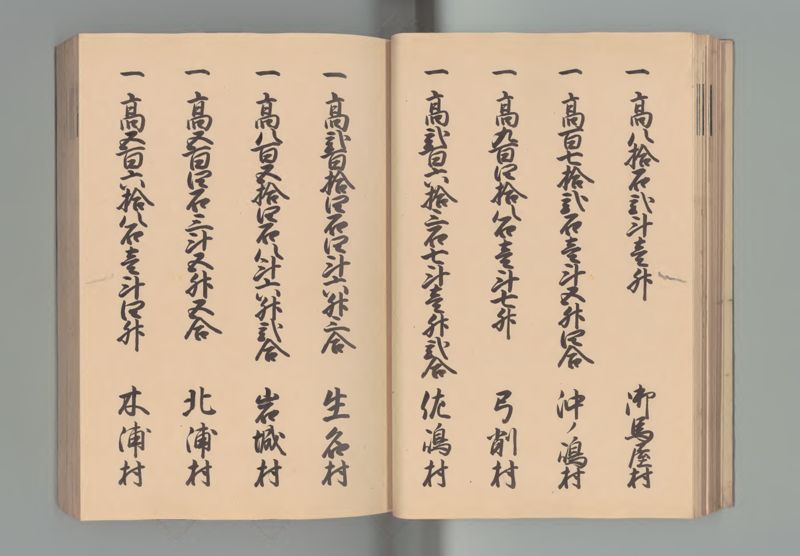 一高八拾石弐斗壱升 御馬屋村
一高百七拾弐石壱斗五升四合 沖ノ嶋村
一高九百四拾八石壱斗七升 弓削村
一高弐百六拾三石七斗壱升弐合 佐嶋村
一高弐百拾四石四斗六升三合 生名村
一高八百五拾四石八斗六升弐合 岩城村
一高五百四石三斗五升五合 北浦村
一高五百六拾八石壱斗四升 木浦村